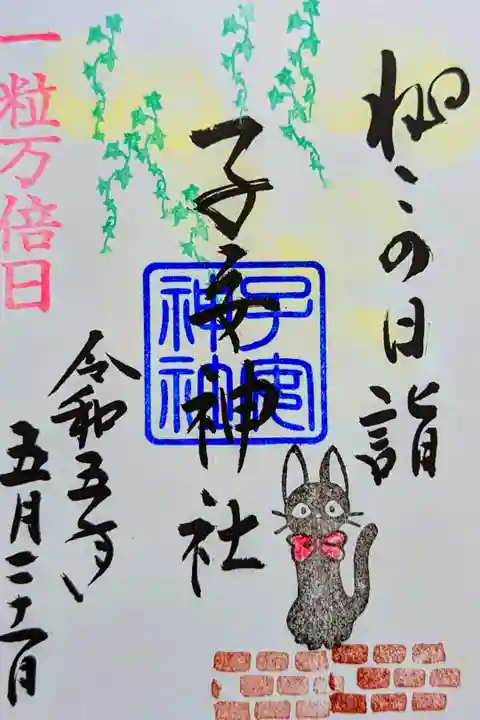 ねこの日詣
子安神社
子安
神社
一粒万倍日
令和五年
五月二十二日